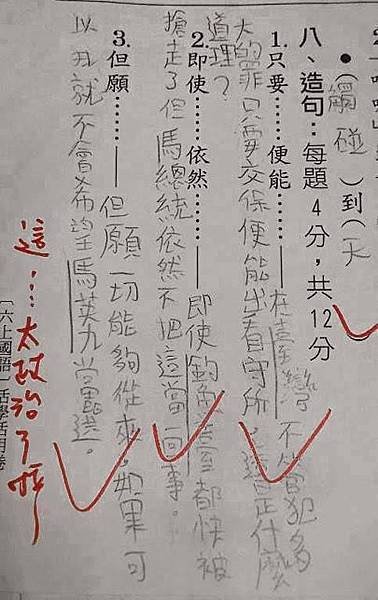 ●（觸碰）到（天
八、造句：每題4分，共12分
1.只要……便能……——在臺灣不管犯多
大的罪只要交保便能出看守所，這是什麼
道理？
2.即使……依然……——即使釣魚臺都快被
搶走了但馬總統依然不把這當一回事。
3.但願……——但願一切能夠從來，如果可
以我就不會希望馬英九當選。
這…太政治了吧
〔六上國語〕活學活用卷